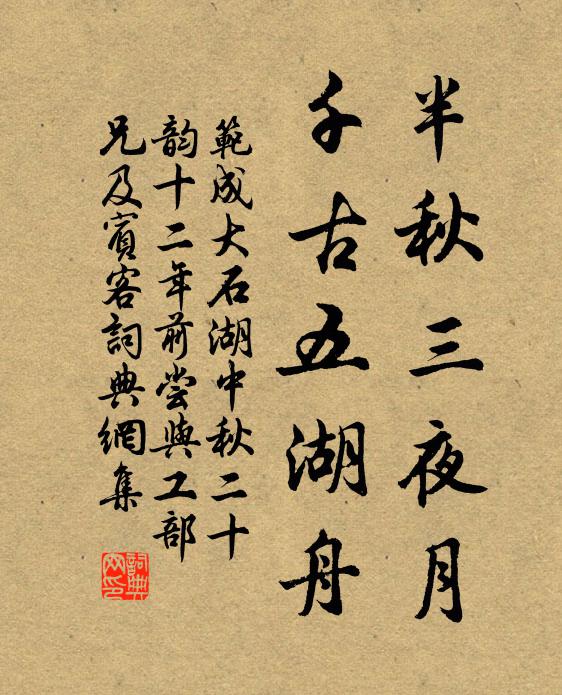 半秋三夜月
千古五湖舟
範成大石湖中秋二十
韵十二年前嘗與工部
兄及賓客詞典網集
詞典
网印